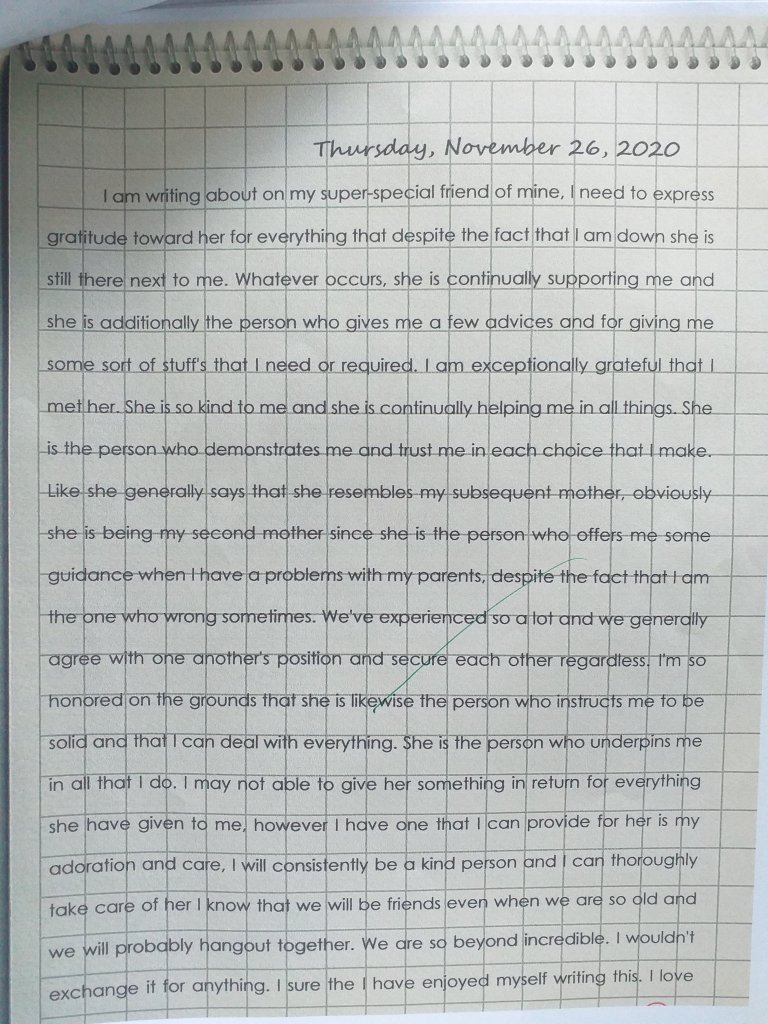 Thursday, November 26, 2020
I am writing about on my super-special friend of mine, I need to express
gratitude toward her for everything that despite the fact that I am down she is
still there next to me. Whatever occurs, she is continually supporting me and
she is additionally the person who gives me a few advices and for giving me
some sort of stuff's that I need or required. I am exceptionally grateful that I
met her. She is so kind to me and she is continually helping me in all things. She
is the person who demonstrates me and trust me in each choice that I make.
Like she generally says that she resembles my subsequent mother, obviously
she is being my second mother since she is the person who offers me some
guidance when I have a problems with my parents, despite the fact that I am
the one who wrong sometimes. We've experienced so a lot and we generally
agree with one another's position and secure each other regardless. I'm so
honored on the grounds that she is likewise the person who instructs me to be
solid and that I can deal with everything. She is the person who underpins me
in all that I do. I may not able to give her something in return for everything
she have given to me, however I have one that I can provide for her is my
adoration and care, I will consistently be a kind person and I can thoroughly
take care of her I know that we will be friends even when we are so old and
we will probably hangout together. We are so beyond incredible. I wouldn't
exchange it for anything. I sure the I have enjoyed myself writing this. I love